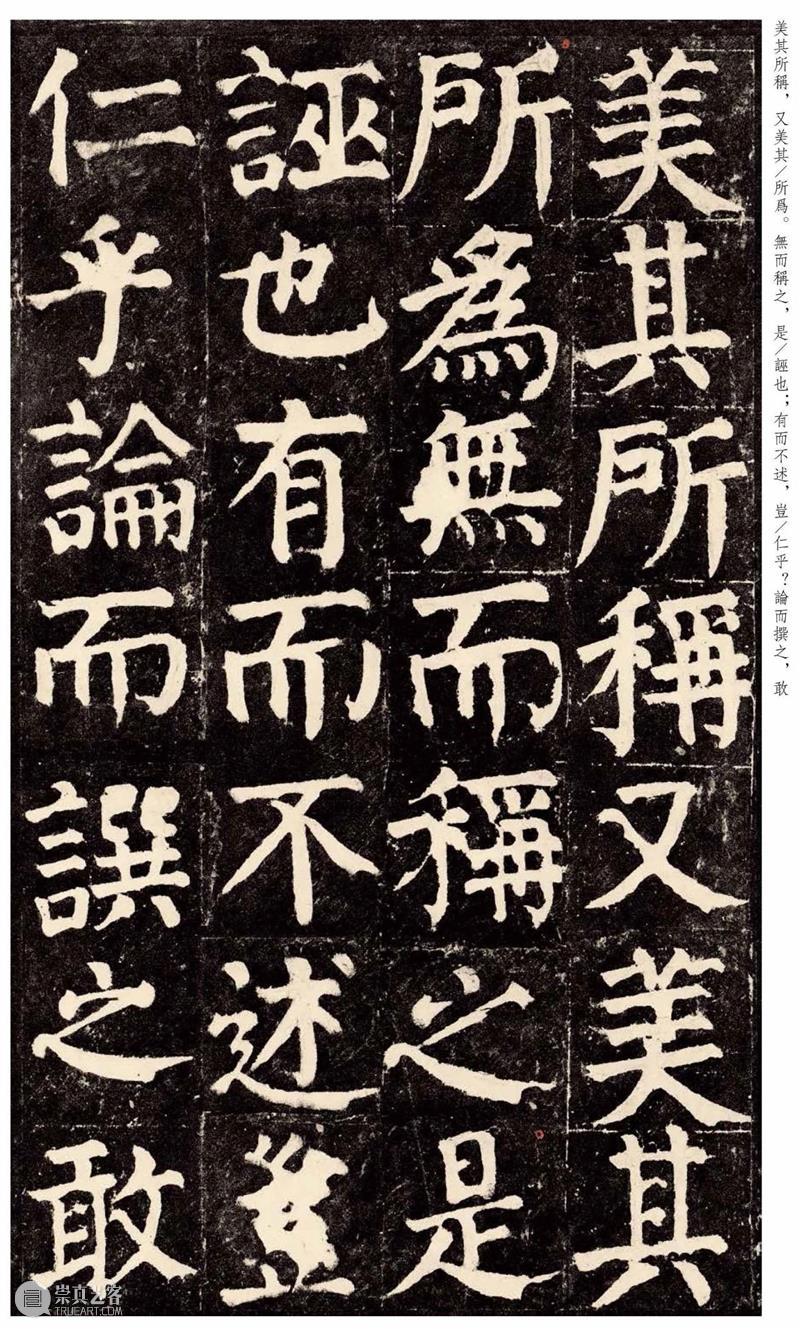 美其所稱又美其
所為無而稱之是
誣也有而不述豈
仁乎論而譔之敢
美其所稱，又美其／所爲。無而稱之，是／誣也；有而不述，豈／仁乎？論而撰之，敢
崇真艺客
TRUEART.COM